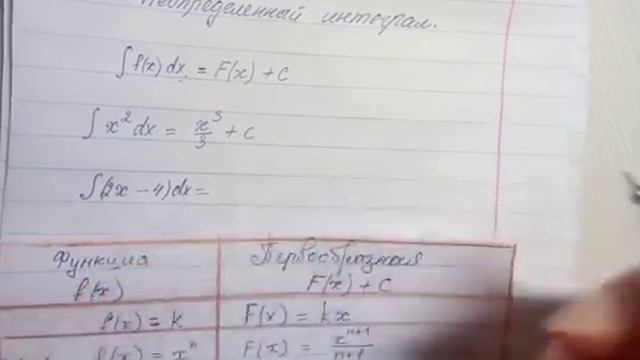 Неопределенный интеграл.
∫f(x)dx = F(x) + C
∫x²dx = x³/3 + C
∫(2x − 4)dx =
Функция Первообразная
f(x) F(x) + C
f(x) = k F(x) = kx
f(x) = xⁿ F(x) = xⁿ⁺¹/n+1